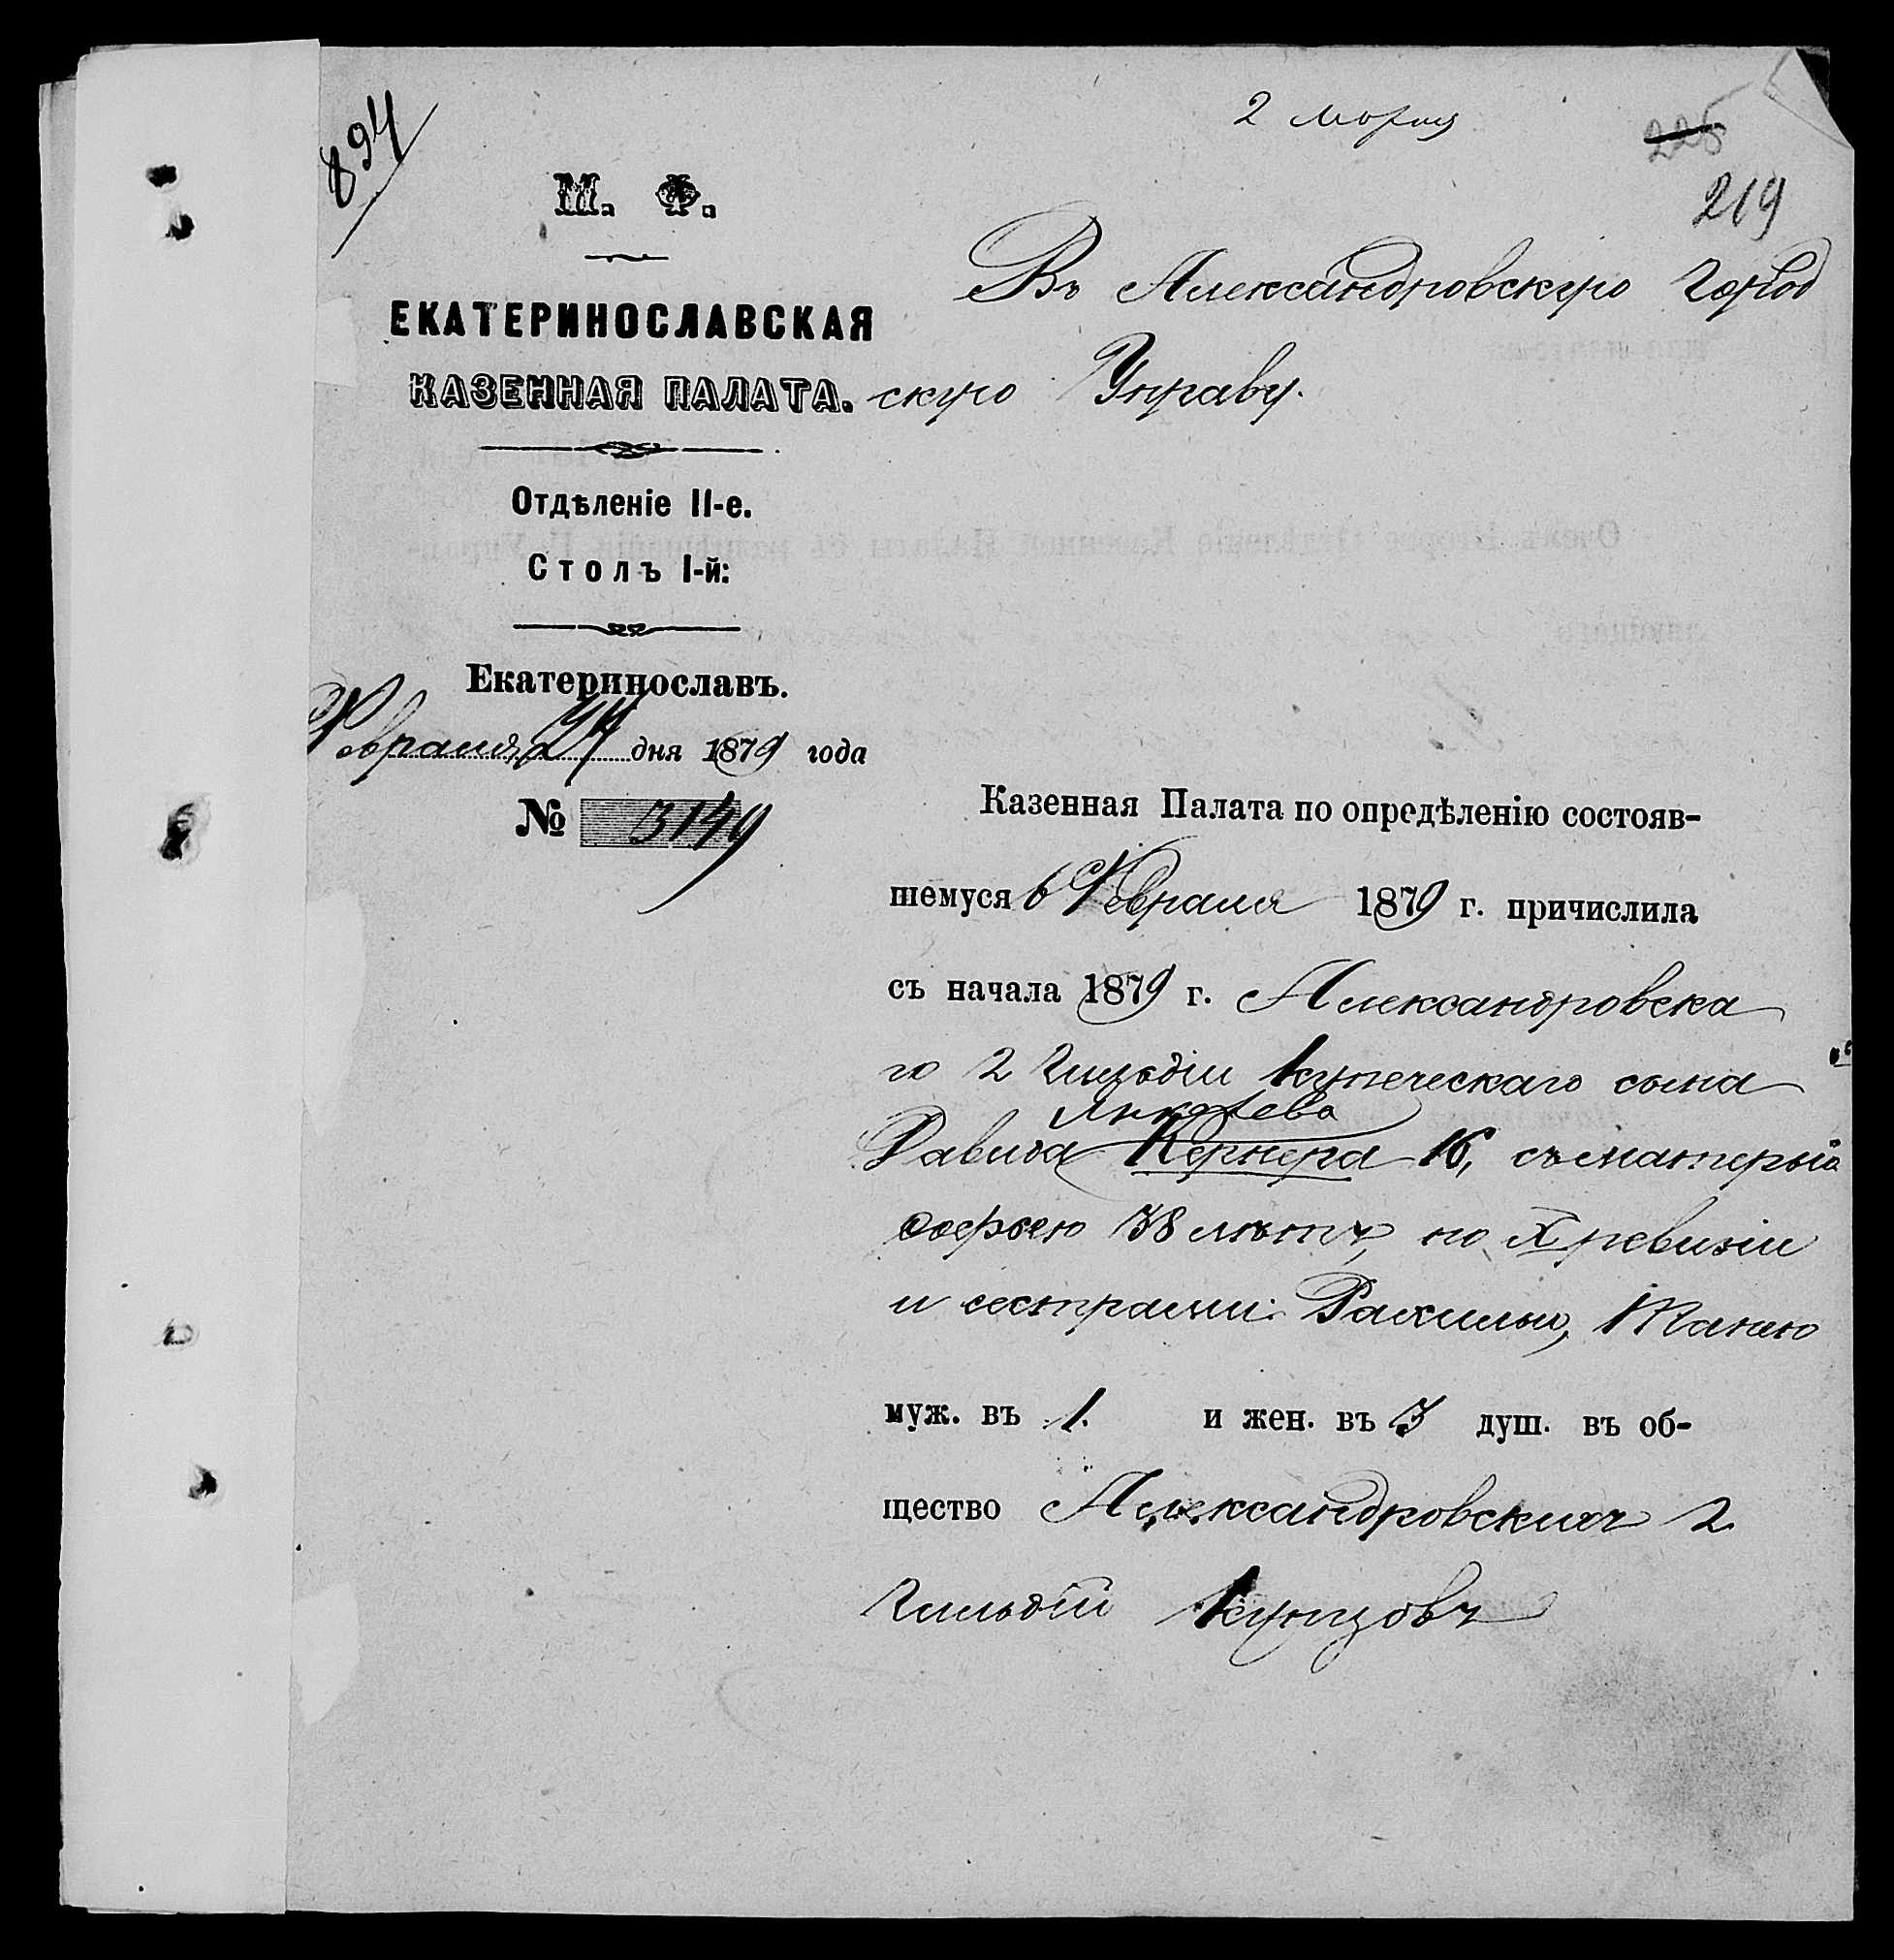 894
2 марта
225
219
М. Ф.
Въ Александровскую Город
ЕКАТЕРИНОСЛАВСКАЯ
КАЗЕННАЯ ПАЛАТА.
скую Управу.
Отдѣленіе II-е.
Столъ I-й:
Екатеринославъ.
Февраля 24 дня 1879 года
№ 3149
Казенная Палата по опредѣленію состояв-
шемуся 6 Февраля 1879 г. причислила
съ начала 1879 г. Александровска
го 2 Гильдіи купеческаго сына
Давида Кернера 16, съ матерью
38 лѣтъ, по X ревизіи
и сестрами: Рахилью,
муж. въ 1. и жен. въ 3 душ. въ об-
щество Александровскихъ 2
Гильдіи Купцовъ